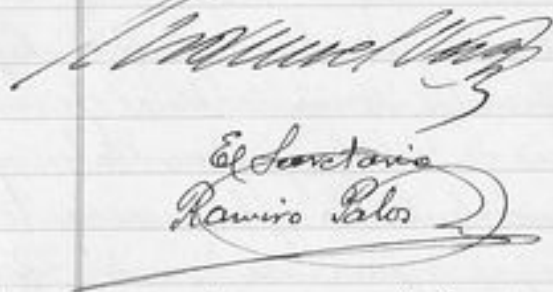 Manuel
El Secretario
Ramiro Palos